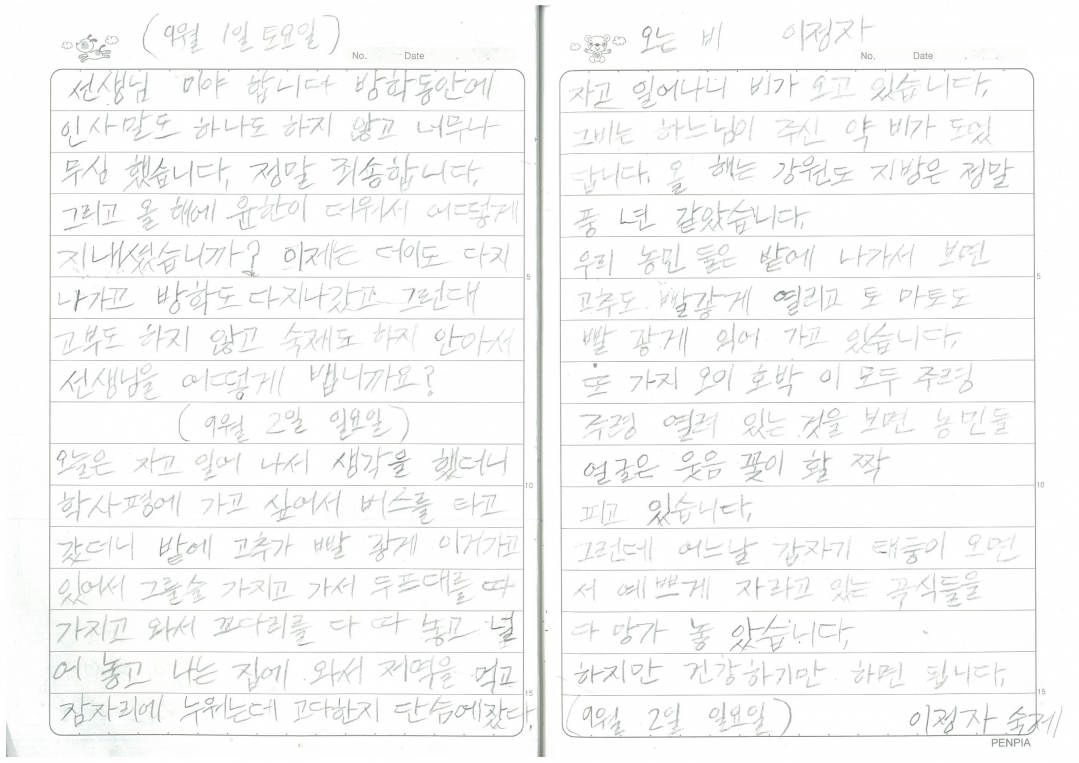 (9월 1일 토요일)
No. Date
선생님 미야 합니다 방학동안에
인사말도 하나도 하지 않고 너무나
무심 했습니다, 정말 죄송합니다,
그리고 올 해에 윤한이 더워서 어떻게
지내셨습니까? 이제는 더이도 다지
나가고 방학도 다지나갔고 그런대
고부도 하지 않고 숙제도 하지 안아서
선생님을 어떻게 뱁니까요?
(9월 2일 일요일)
오늘은 자고 일어 나서 생각을 했더니
학사평에 가고 싶어서 버스를 타고
갔더니 밭에 고추가 빨 강게 이거가고
있어서 그를슬 가지고 가서 두프대를 따
가지고 와서 꼬다리를 다 따 놓고 널
어 놓고 나는 집에 와서 저역을 먹고
잠자리에 누워는데 고다한지 단숨에잤다,
오는 비 이정자
No. Date
자고 일어나니 비가 오고 있습니다,
그비는 하느님이 주신 약 비가 되었
답니다. 올 해는 강원도 지방은 정말
풍 년 같았습니다,
우리 농민 들은 밭에 나가서 보면
고추도 빨갛게 열리고 토 마토도
빨 갛게 익어 가고 있습니다,
또 가지 오이 호박 이 모두 주렁
주렁 열려 있는 것을 보면 농민들
얼굴은 웃음 꽃이 활 짝
피고 있습니다,
그런데 어느날 갑자기 태풍이 오면
서 예쁘게 자라고 있는 곡식들을
다 망가 놓 았습니다,
하지만 건강하기만 하면 됩니다,
(9월 2일 일요일) 이정자 숙제
5
10
15
5
10
15
PENPIA